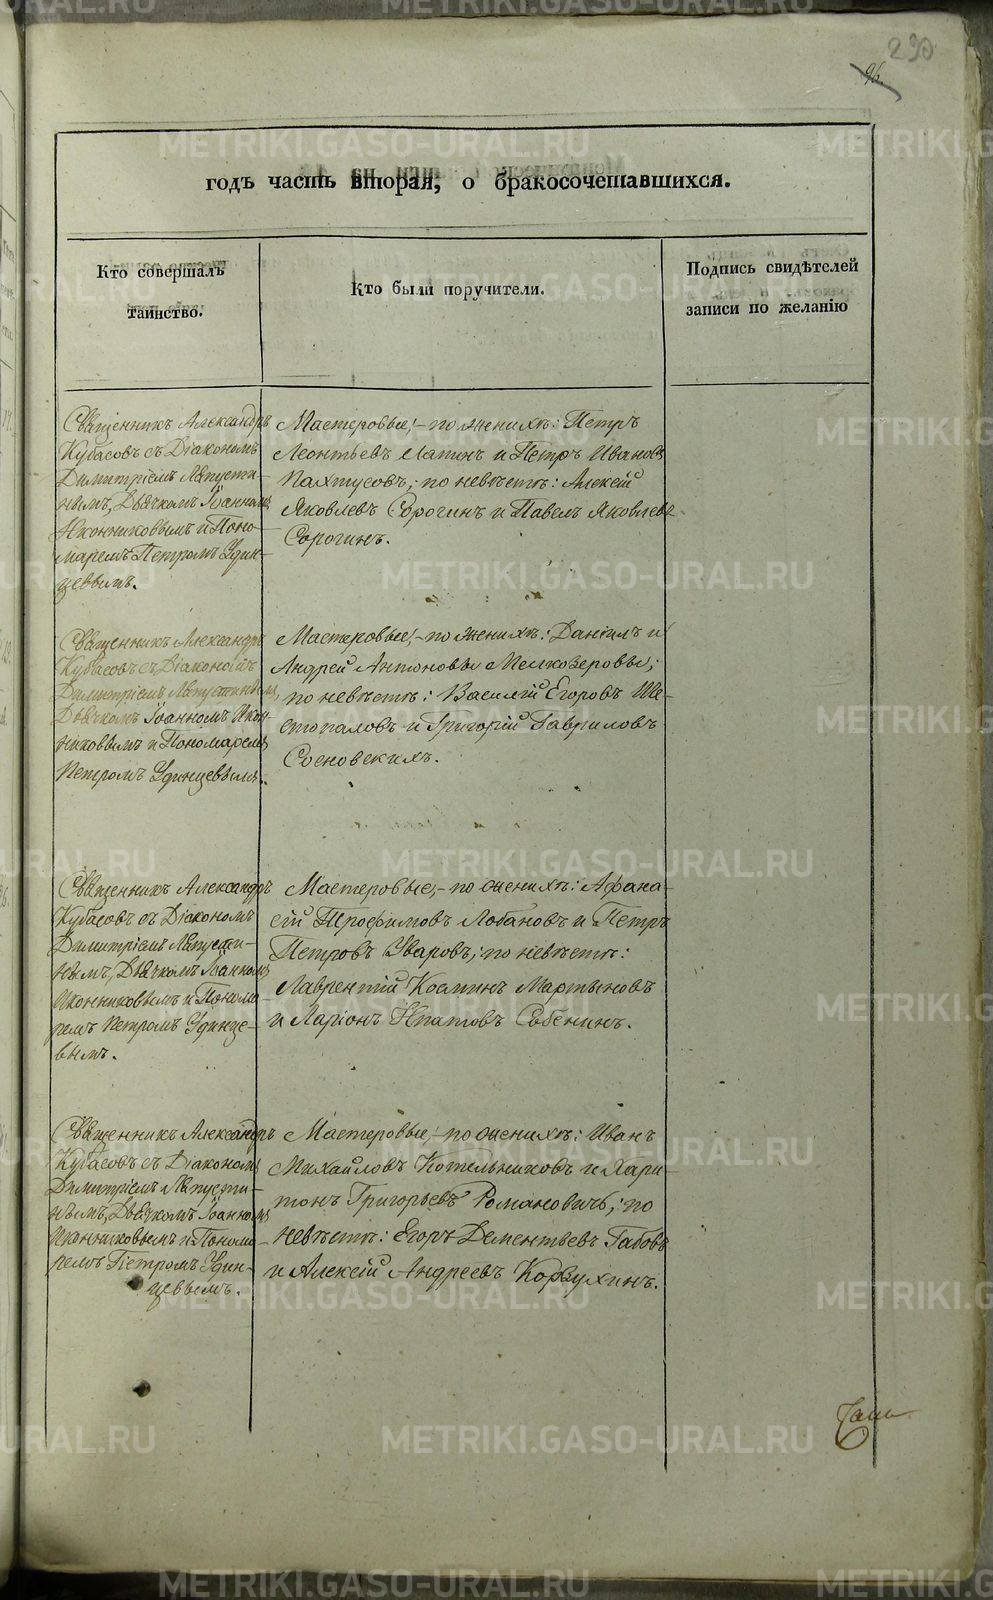 290
96.
годъ часть вторая, о бракосочетавшихся.
Кто совершалъ
таинство.
Кто были поручители.
Подпись свидѣтелей
записи по желанію
Священникъ Александръ
Кубасовъ съ Діакономъ
Димитріемъ Капусти-
нымъ, Дьячкомъ Іоанномъ
Иконниковымъ и Поно-
маремъ Петромъ Удин-
цевымъ.
Мастеровые,- по женихѣ: Петръ
Леонтьевъ Лапинъ и Петръ Ивановъ
Пахтусовъ; по невѣстѣ: Алексій
Яковлевъ Сорогинъ и Павелъ Яковлевъ
Сорогинъ.
Священникъ Александръ
Кубасовъ съ Діакономъ
Димитріемъ Капустинымъ,
Дьячкомъ Іоанномъ Икон-
никовымъ и Пономаремъ
Петромъ Удинцевымъ.
Мастеровые,- по женихѣ: Даніилъ и
Андрей Антоновы Мелкозеровы;
по невѣстѣ: Василій Егоровъ Ше-
стопаловъ и Григорій Гавриловъ
Сосновскихъ.
Священникъ Александръ
Кубасовъ съ Діакономъ
Димитріемъ Капусти-
нымъ, Дьячкомъ Іоанномъ
Иконниковымъ и Понома-
ремъ Петромъ Удинце-
вымъ.
Мастеровые,- по женихѣ: Афана-
сій Трофимовъ Лобановъ и Петръ
Петровъ Уваровъ; по невѣстѣ:
Лаврентій Козминъ Мартьиновъ
и Ларіонъ Ипатовъ Собенинъ.
Священникъ Александръ
Кубасовъ съ Діакономъ
Димитріемъ Капусти-
нымъ, Дьячкомъ Іоанномъ
Иконниковымъ и Понома-
ремъ Петромъ Удин-
цевымъ.
Мастеровые,- по женихѣ: Иванъ
Михайловъ Котельниковъ и Хари-
тонъ Григорьевъ Романовичь; по
невѣстѣ: Егоръ Дементьевъ Габовъ
и Алексій Андреевъ Корзухинъ.
METRIKI.GASO-URAL.RU